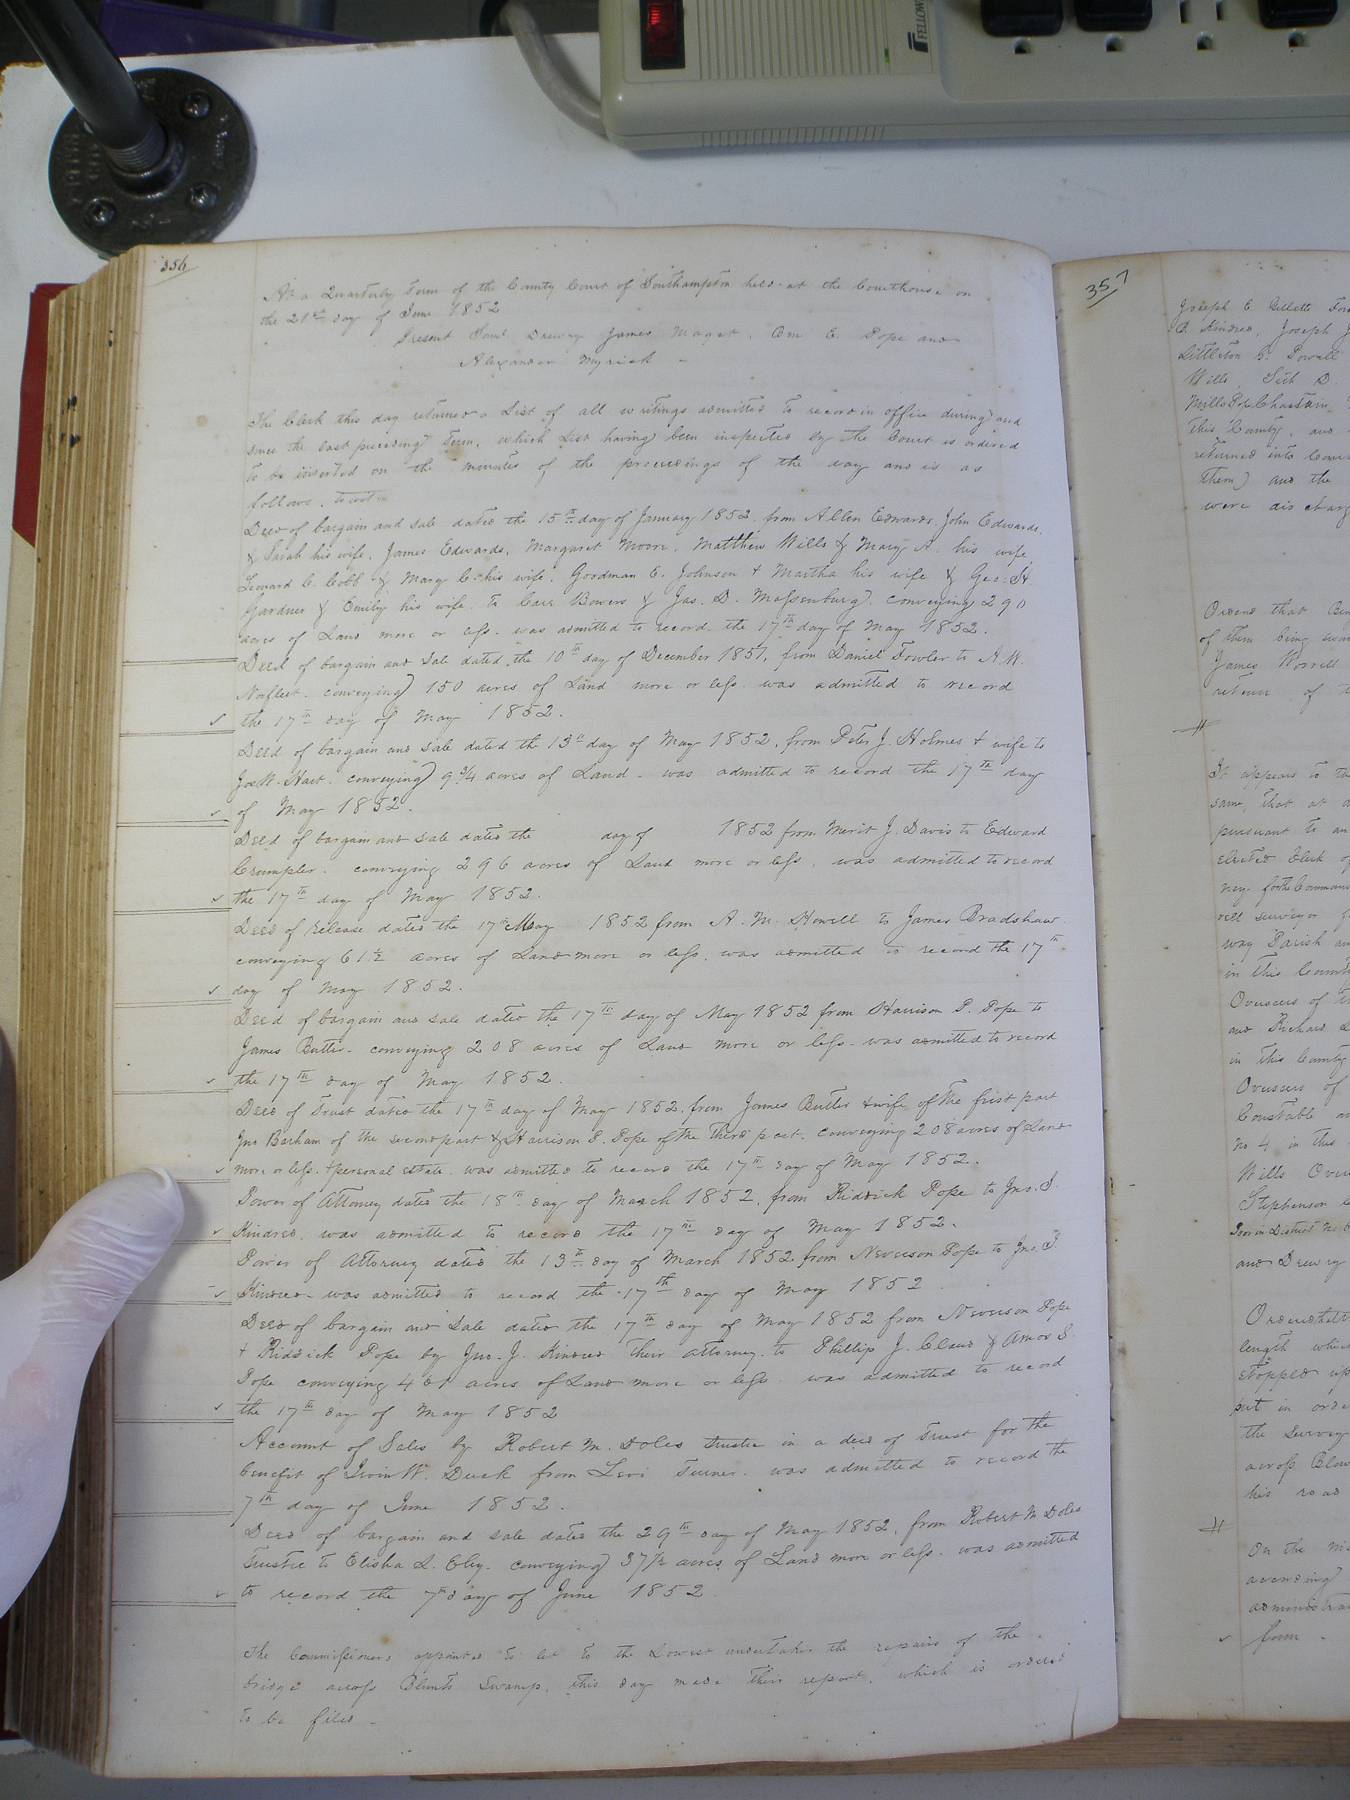 FELLOW
356
At a Quarterly Term of the County Court of Southampton held at the Courthouse on
the 21st day of June 1852
Present Drewry James Maget, Wm E. Pope and
Alexander Myrick
The Clerk this day returned a List of all writings admitted to record in office during and
since the last preceeding Term, which List having been inspected by the Court is ordered
to be inserted on the minutes of the proceedings of the day and is as
follows, to wit
Deed of bargain and sale dated the 15th day of January 1852 from Allen Edwards, John Edwards,
& Sarah his wife, James Edwards, Margaret Moore, Matthew Wills & Mary A. his wife
Leonard C. Cobb & Mary C. his wife, Goodman E. Johnson & Martha his wife & Geo. H
Gardner & Emily his wife to Carr Bowers & Jas. D. Massenburg, conveying 290
acres of Land more or less. was admitted to record the 17th day of May 1852.
Deed of bargain and sale dated the 10th day of December 1851, from Daniel Fowler to A.W.
Norfleet. conveying 150 acres of Land more or less was admitted to record
the 17th day of May 1852.
Deed of bargain and sale dated the 13th day of May 1852, from Peter J. Holmes & wife to
Jos. W. Hart. conveying 9 3/4 acres of Land. was admitted to record the 17th day
of May 1852.
Deed of bargain and sale dated the day of 1852 from Merit J. Davis to Edward
Crumpler. conveying 296 acres of Land more or less. was admitted to record
the 17th day of May 1852.
Deed of release dated the 17th May 1852 from A. M. Howell to James Bradshaw
conveying 61½ acres of Land more or less. was admitted to record the 17th
day of May 1852.
Deed of bargain and sale dated the 17th day of May 1852 from Harrison P. Pope to
James Butler. conveying 208 acres of Land more or less. was admitted to record
the 17th day of May 1852.
Deed of Trust dated the 17th day of May 1852, from James Butler & wife of the first part
Jno Barham of the second part & Harrison P. Pope of the third part. conveying 208 acres of Land
more or less. & personal estate was admitted to record the 17th day of May 1852.
Power of Attorney dated the 18th day of March 1852, from Riddick Pope to Jno. J.
Kindred, was admitted to record the 17th day of May 1852.
Power of Attorney dated the 13th day of March 1852 from Neverson Pope to Jno. J.
Kindred was admitted to record the 17th day of May 1852
Deed of bargain and Sale dated the 17th day of May 1852 from Neverson Pope
& Riddick Pope by Jno. J. Kindred their attorney. to Phillip J. Claud & Amos S.
Pope conveying 461 acres of Land more or less was admitted to record
the 17th day of May 1852
Account of Sales by Robert M. Doles trustee in a deed of Trust for the
benefit of Irvin W. Duck from Levi Turner. was admitted to record the
7th day of June 1852.
Deed of bargain and sale dated the 29th day of May 1852, from Robert M Doles
trustee to Elisha L. Eley. conveying 37½ acres of Land more or less. was admitted
to record the 7th day of June 1852.
The Commissioners appointed to let to the Lowest undertaker the repairs of the
bridge across Blunts Swamp, this day made their report, which is ordered
to be filed
357
Joseph E Gillette
B. Kindred, Joseph J
Littleton Powell
Wills, Seth D.
Mills Pope Chastain
this County, and
returned into
them) and the
were discharg
Ordered that Ben
of them being
James Worrell
return of t
It appears to th
same, that at a
pursuant to an
elected Clerk of
ney for the Common
rell surveyor
way Parish an
in this Count
Overseers of th
and Richard
in this County
Overseers of
Constable
no 4 in this
Wills Over
Stephenson
Poor in District No 6
and Drewry
Ordered
length which
stopped up
put in orde
the Survey
across Blun
his road
On the
administra
form